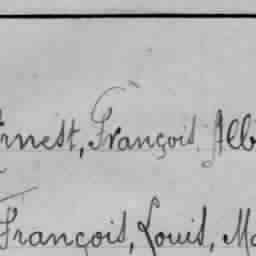 Ernest, François Alb
François, Louis, Ma